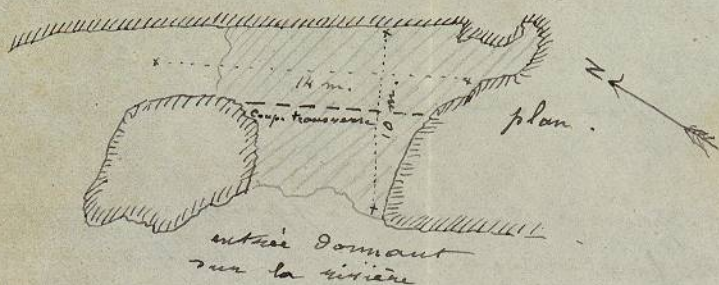 14 m.
10 m.
Coupe transverse
N
plan.
entrée donnant
sur la rivière